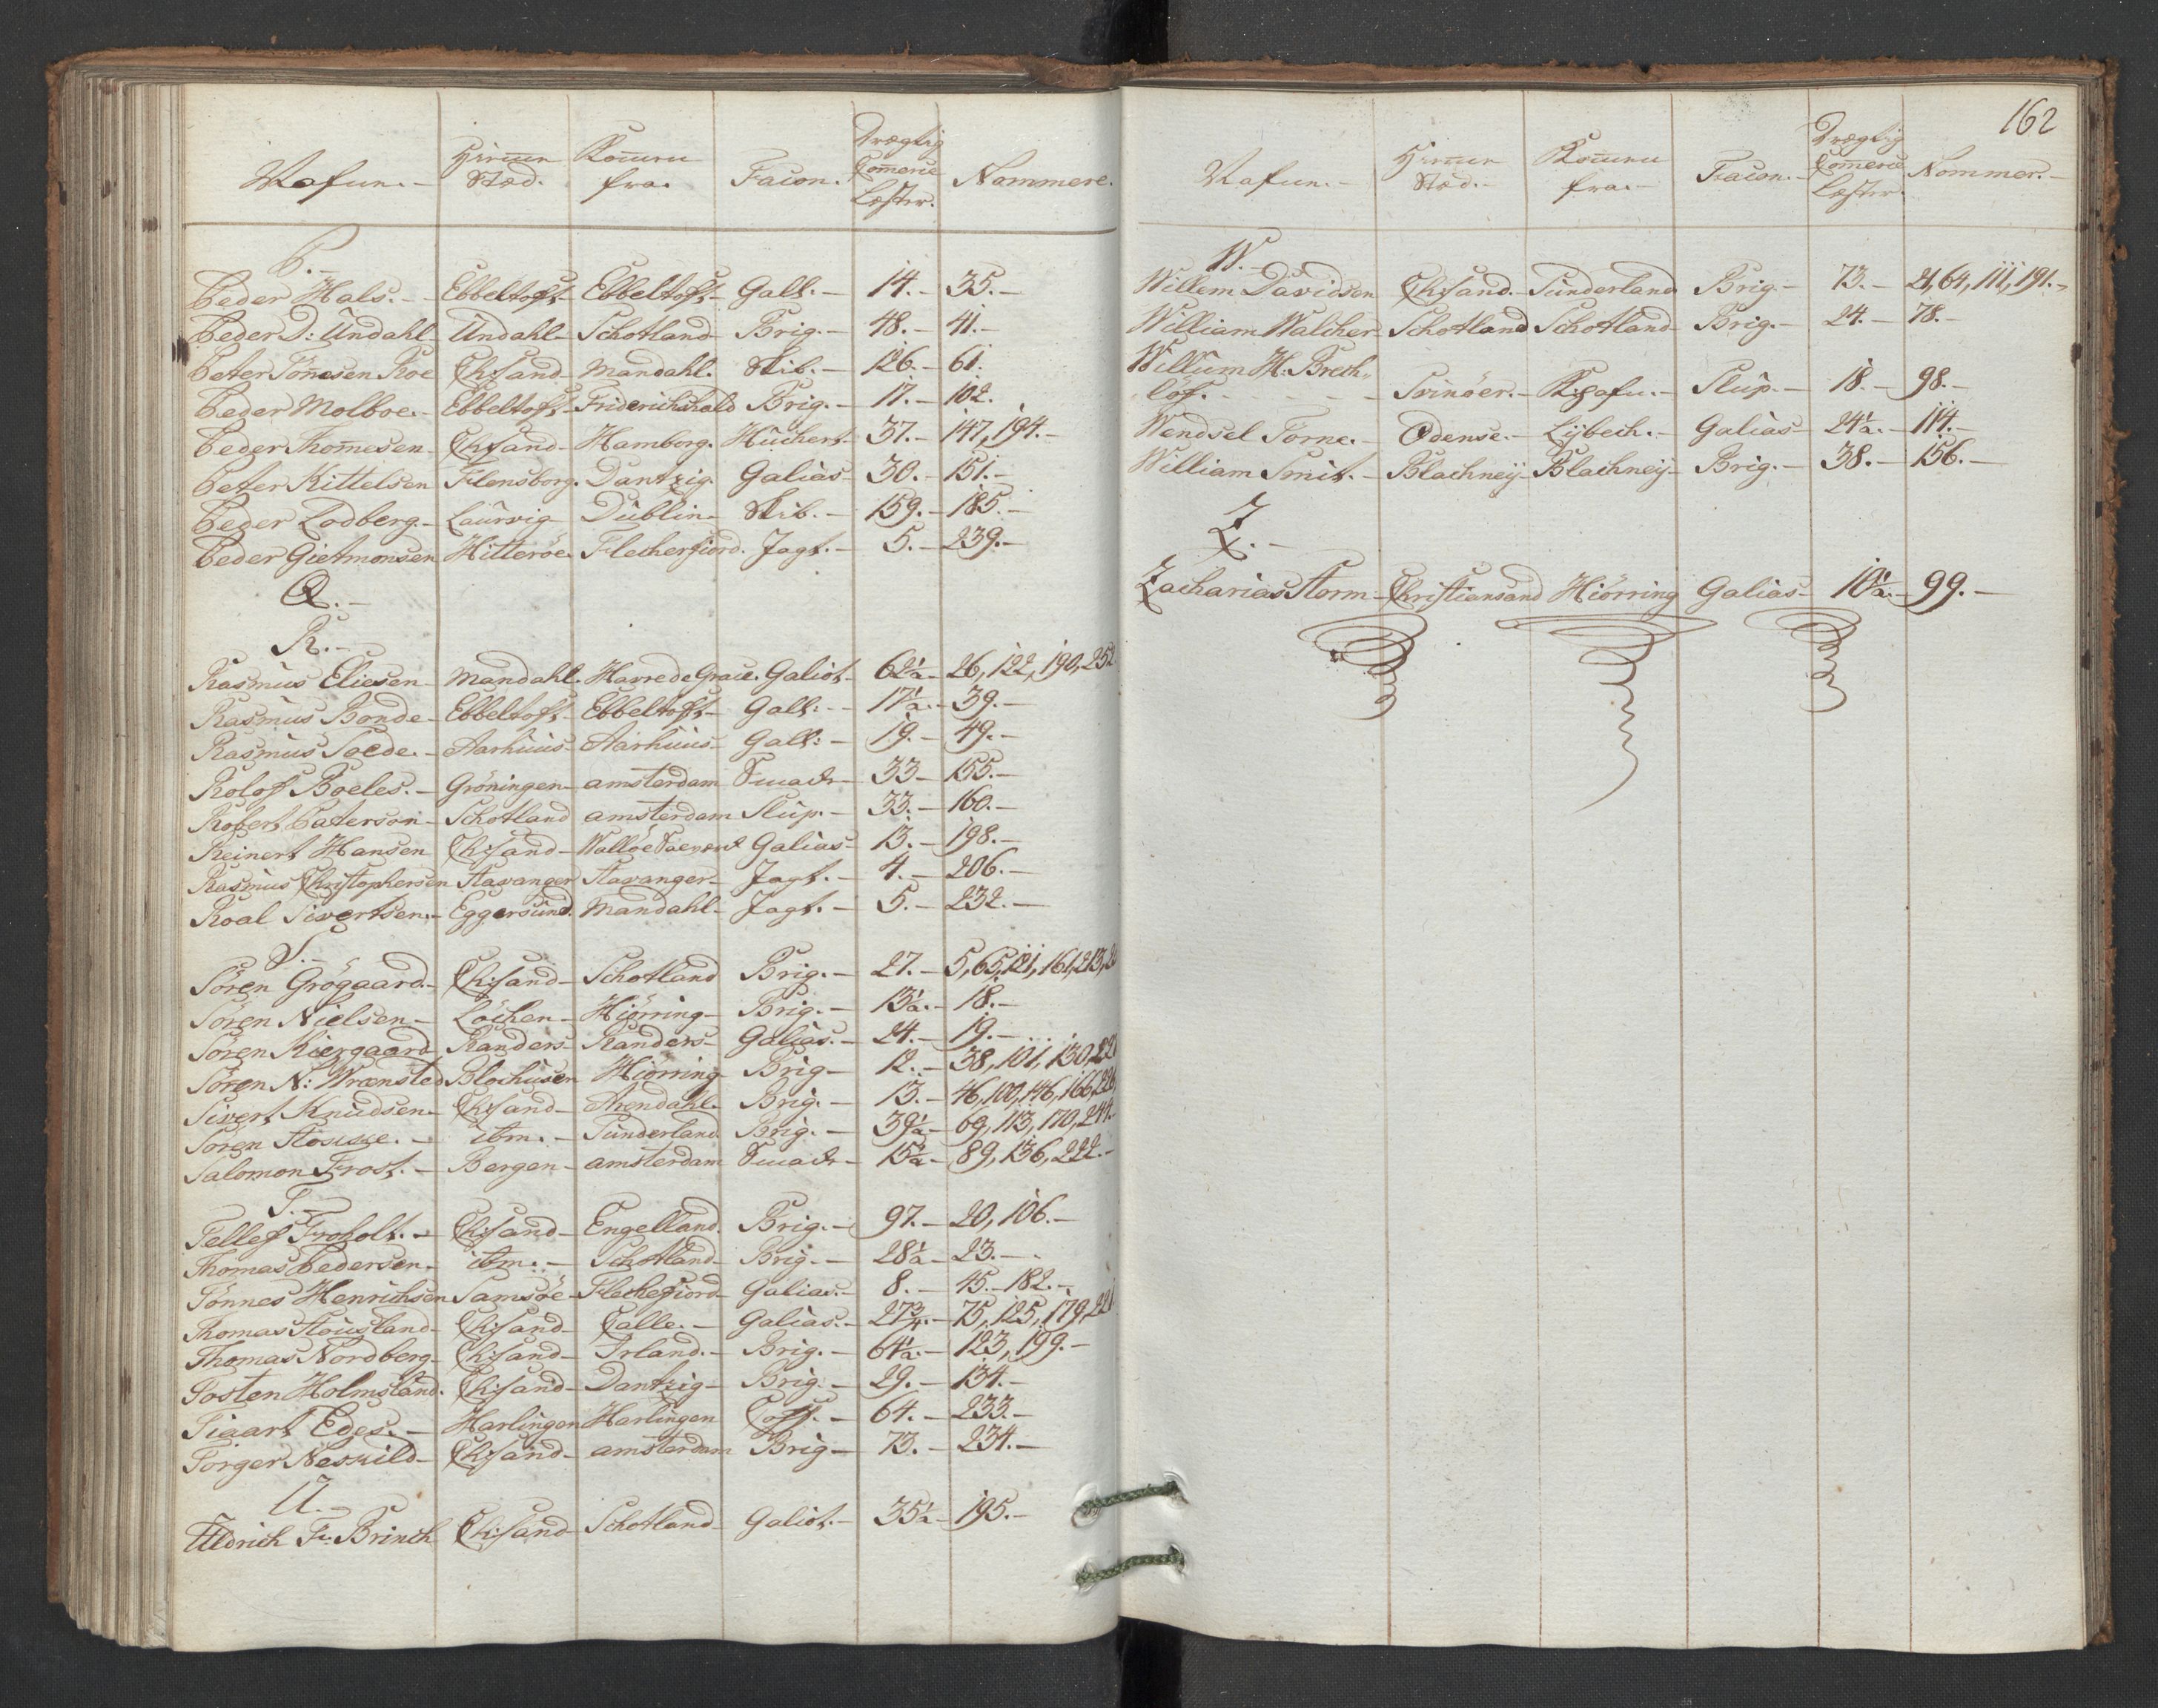 Nafun. Hiem̅e Stæd. Kom̅en fra. Facon. Drægtig Com̅erce Læster. Nommere.
P.
Peder Hals. Ebbeltoft Ebbeltoft Gall. 14. 35.
Peder D: Undahl Undahl Schotland Brig. 48. 41.
Peter Tön̅esen Roe Chsand Mandahl. Skib. 126. 61.
Peder Molboe. Ebbeltoft Friderichshald Brig. 17. 102.
Peder Thom̅esen Chsand Hamborg. Huchert 37. 147, 194.
Peter Kittelsen Flensborg. Dantzig. Galias 30. 151.
Peder Lodberg. Laurvig Dublin Skib. 159. 185.
Peder Gietmonsen Hitteröe Flecherfiord. Jagt. 5. 239.
Q.
R.
Rasmus Eliesen Mandahl. Havre de Grace. Galiot 62½ 26, 122, 190, 252
Rasmus Bonde Ebbeltoft Ebbeltoft Gall: 17½. 39.
Rasmus Soede. Aarhuus Aarhuus Gall: 19. 49.
Rolof Boeles. Gröningen amsterdam Smack 33 155.
Robert Paterson Schotland amsterdam Slup. 33. 160.
Reinert Hansen Chsand Walløe Galias 13. 198.
Rasmus Christophersen Stavanger Stavanger Jagt. 4. 206.
Roal Sivertsen. Eggersund. Mandahl Jagt. 5. 232.
S.
Sören Grögaard. Chsand Schotland Brig. 27. 5, 65, 121, 161, 213, 2
Sören Nielsen Löchen Hiörring Brig. 13½. 18.
Sören Kiergaard Randers Randers Galias. 24. 19.
Sören N: Wrænsted Blochusen Hiörring Brig 12. 38, 101, 130, 22
Sivert Knudsen Chsand Arendahl. Brig. 13. 46, 100, 146, 166, 226
Sören ibm. Sunderland Brig. 39½ 69, 113, 170, 244.
Salomon Frost. Bergen amsterdam Smack 15½ 89, 136, 222.
T.
Tellef Froholt. Chsand Engelland. Brig. 97. 20, 106.
Thomas Pedersen ibm. Schotland Brig. 28½ 23.
Tönnes Henrichsen Samsöe Flechefiord Galias. 8. 45. 182.
Thomas Stousland Chsand Calle. Galias. 27¾. 75, 125, 179, 221
Thomas Nordberg Chsand Irland. Brig. 64½. 123, 199.
Tosten Holmsland. Chsand Dantzig Brig. 29. 134.
Tiaart Edes. Harlingen Harlingen Coff. 64. 233.
Torger Neskild Chsand amsterdam Brig 73. 234.
U.
Uldrich Fr: Brinch Chsand Schotland Galiot. 35½ 195.
162
Nafun. Hiem̅e Stæd. Kom̅en fra. Facon. Drægtig Com̅erce Læster. Nommer.
W.
Willem Davidson Chsand. Sunderland Brig. 73. 21, 64, 111, 191.
William Walcher Schotland Schotland Brig. 24. 78.
Willum H. Brech
löf. Svinöer. Kbhafn. Slup. 18. 98.
Wendsel Torne. Odense. Lybech. Galias 24½. 114.
William Smit. Blachney Blachney Brig. 38. 156.
Z.
Zacharias Storm Christiansand Hiörring Galias 10½. 99.